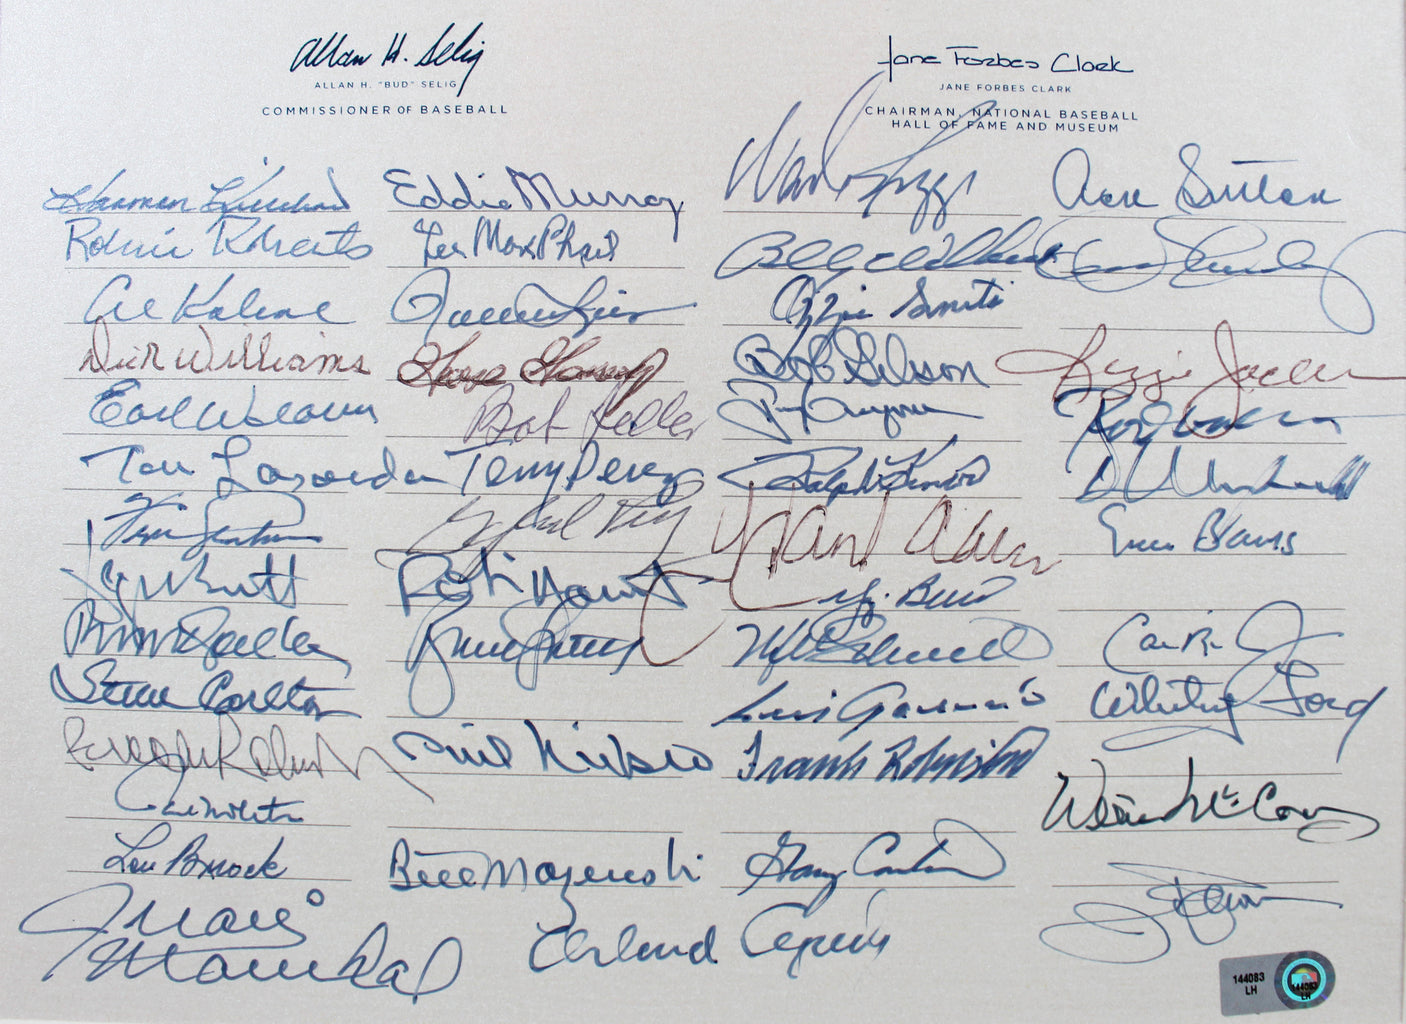 Allan H. Selig
ALLAN H. "BUD" SELIG
COMMISSIONER OF BASEBALL
Jane Forbes Clark
JANE FORBES CLARK
CHAIRMAN, NATIONAL BASEBALL
HALL OF FAME AND MUSEUM
Harmon Killebrew Eddie Murray Wade Boggs Don Sutton
Robin Roberts Lee MacPhail Billy Williams
Al Kaline Ozzie Smith
Dick Williams Bob Gibson Reggie Jackson
Earl Weaver Bob Feller
Tom Lasorda Tony Perez Ralph Kiner
Fergie Jenkins Gaylord Perry Hank Aaron Ernie Banks
Robin Yount
Bruce Sutter Cal Ripken Jr
Steve Carlton Luis Aparicio Whitey Ford
Brooks Robinson Phil Niekro Frank Robinson
Willie McCovey
Lou Brock Bill Mazeroski Gary Carter
Juan Marichal Orlando Cepeda
144083
LH
144083
LH